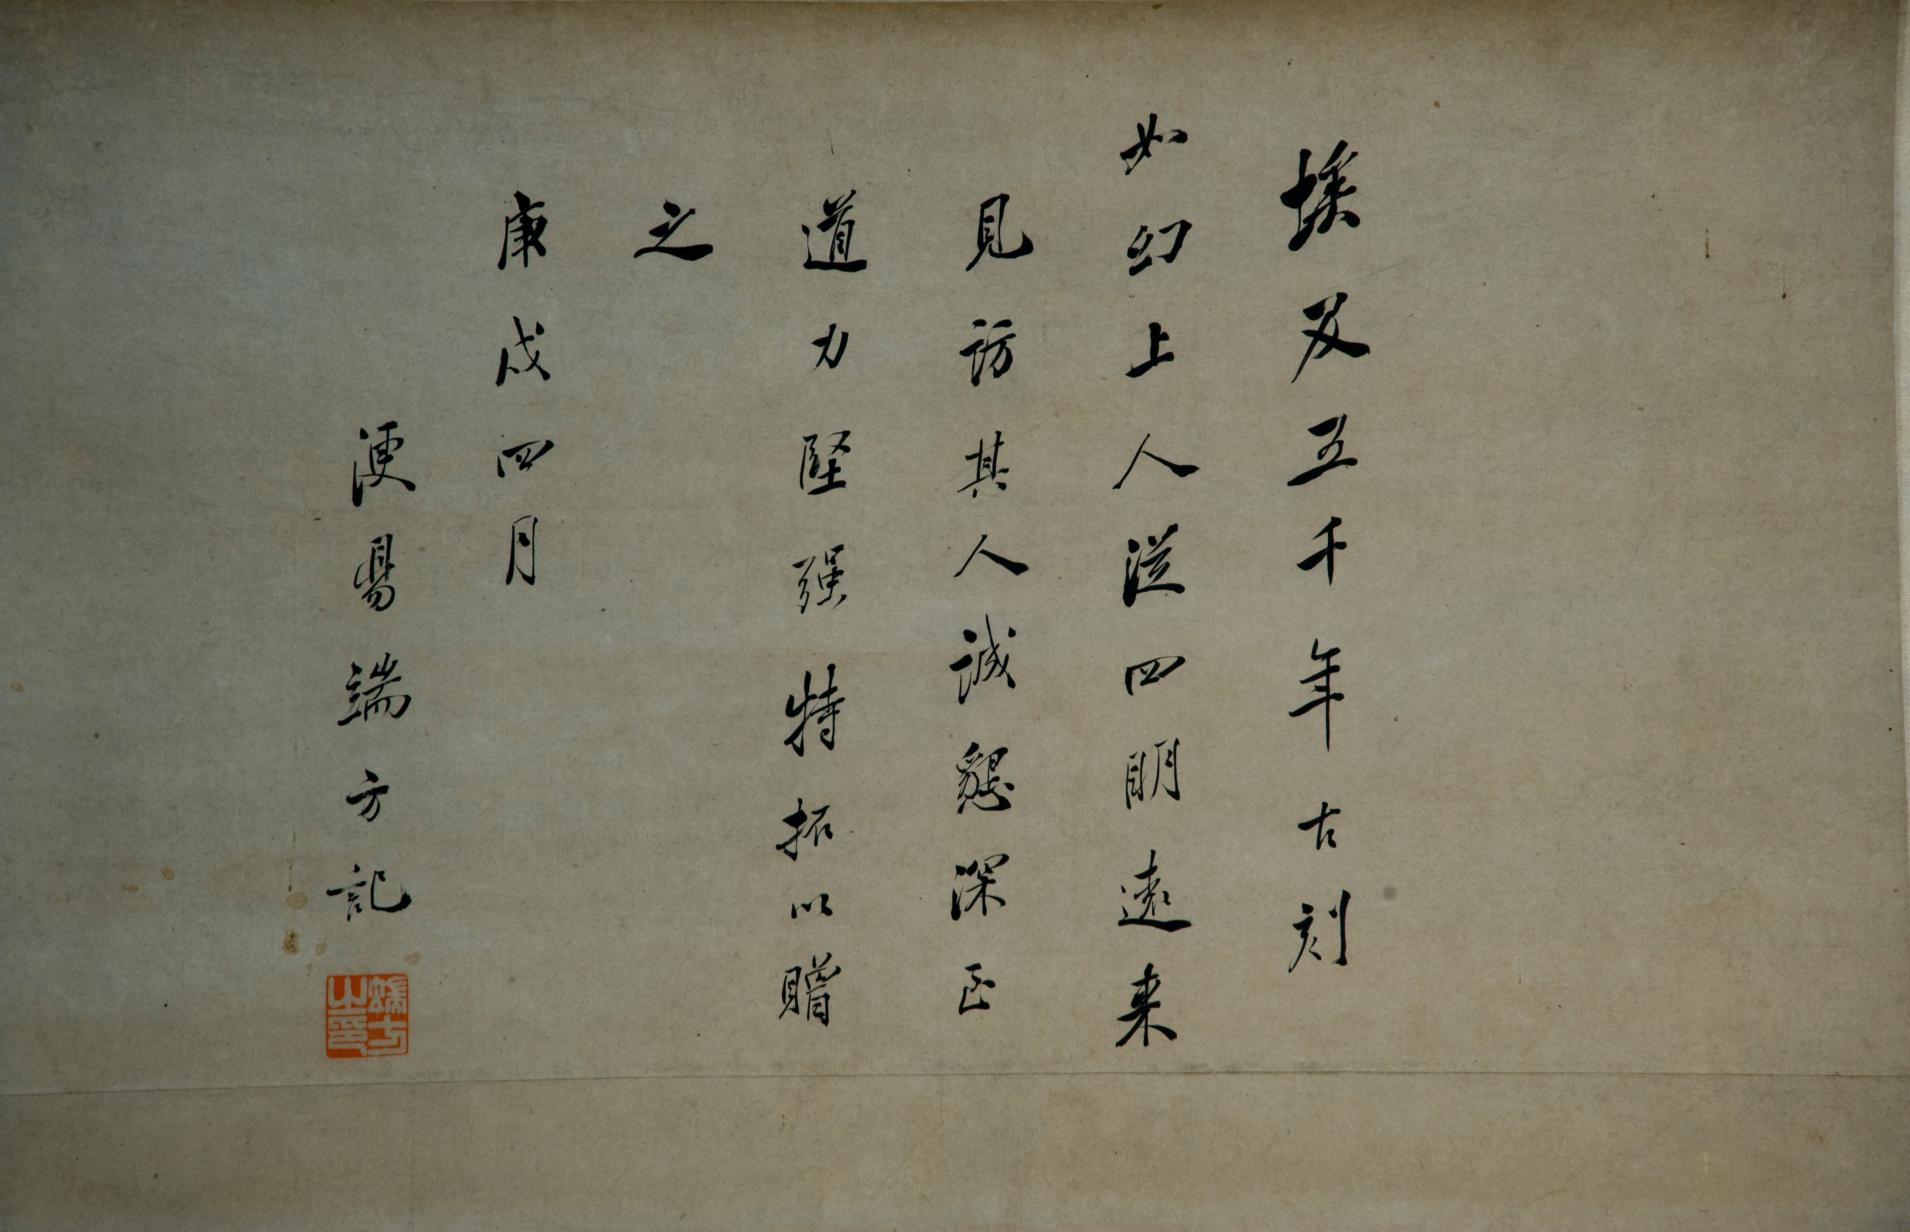 埃及五千年古刻
如幻上人从四明遠来
見訪其人誠懇深正
道力堅强特拓以贈
之
庚戌四月
浭陽端方記
端方之印